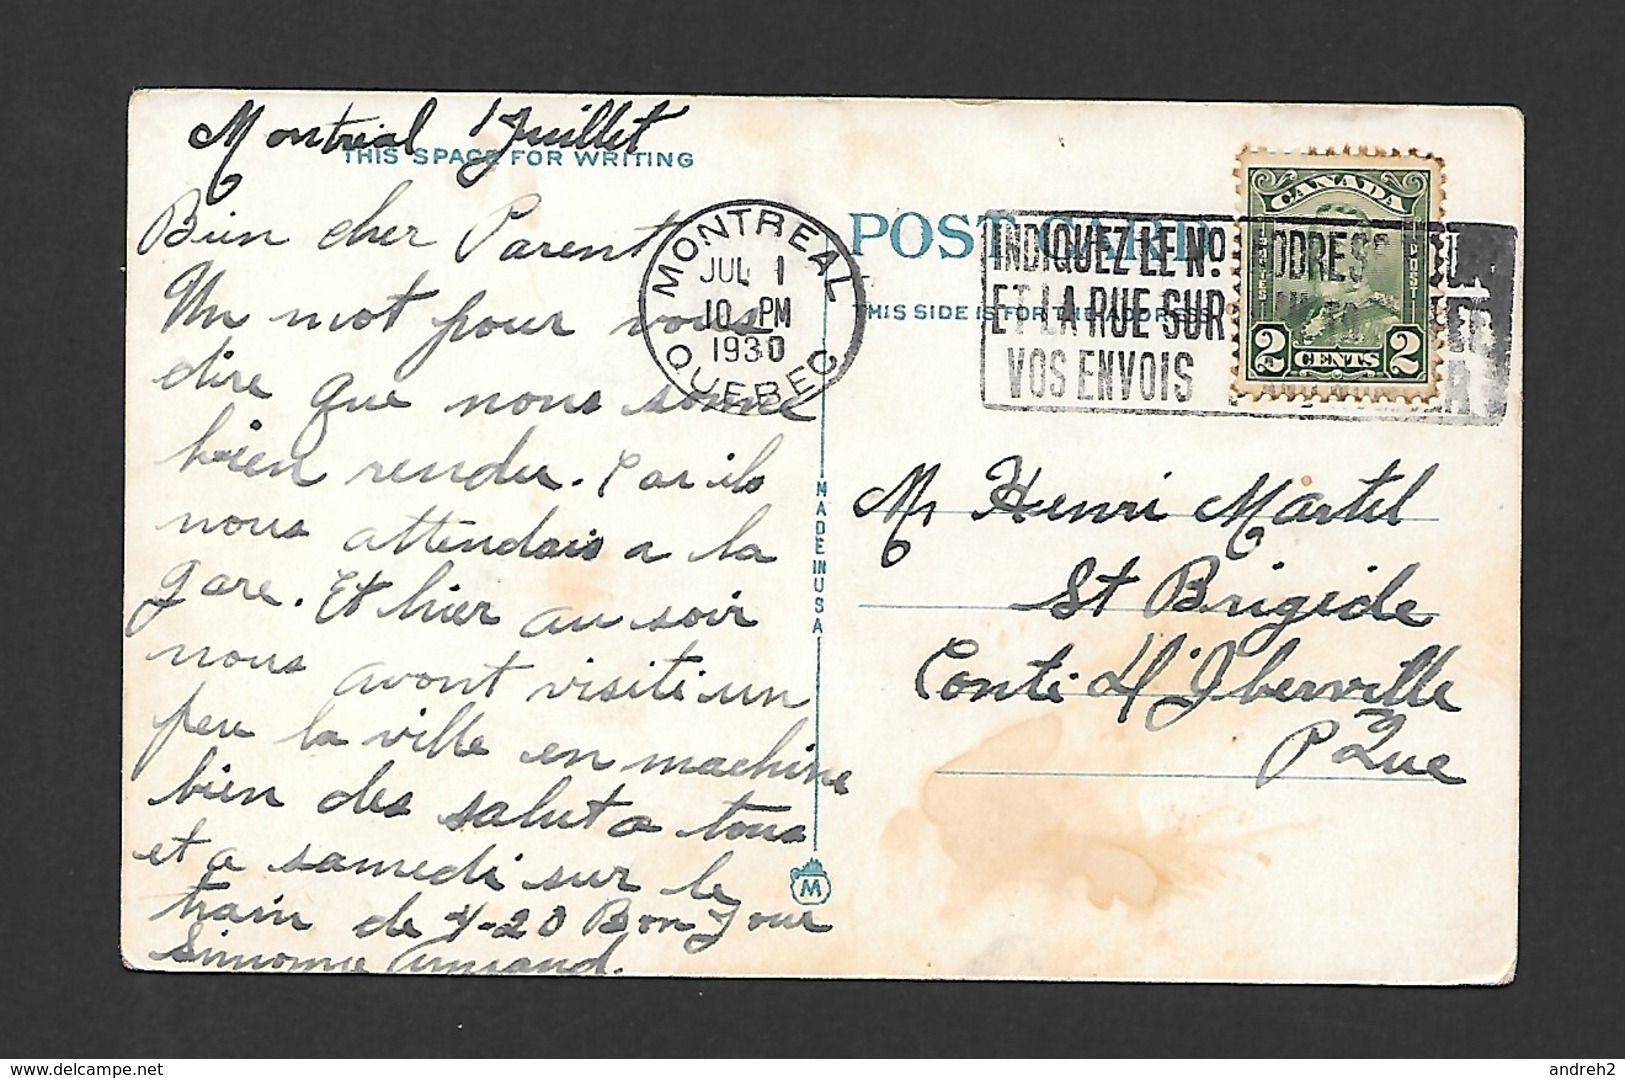 Montréal 1 Juillet
THIS SPACE FOR WRITING
Bien cher Parent
Un mot pour vous
dire que nous somme
bien rendu. Car ils
nous attendais a la
gare. Et hier au soir
nous avont visiti un
peu la ville en machine
bien des salut a tous
et a samedi sur le
train de 4-20 Bon Jour
Simonne Armand.
MONTREAL
JUL 1
10 PM
1930
QUEBEC
MADE IN USA
M
POST CARD
THIS SIDE IS FOR THE ADDRESS
INDIQUEZ LE NO.
ET LA RUE SUR
VOS ENVOIS
CANADA
POSTES POST
2 CENTS 2
Mr Henri Martel
St Brigide
Conté D'Iberville
P Que
delcampe.net
andreh2